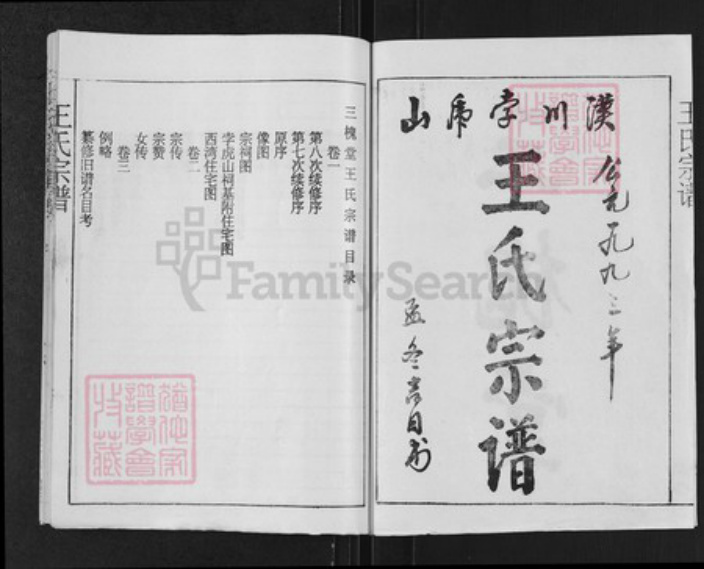 汉川李虎山
公元一九九三年
王氏宗谱
孟冬吉日书
王氏宗谱
三槐堂王氏宗谱目录
卷一
第八次续修序
第七次续修序
原序
像图
宗祠图
李虎山祠基附住宅图
西湾住宅图
卷二
宗传
宗赞
女传
卷三
例略
纂修旧谱名目考
王氏宗谱
FamilySearch
譜學會
收藏